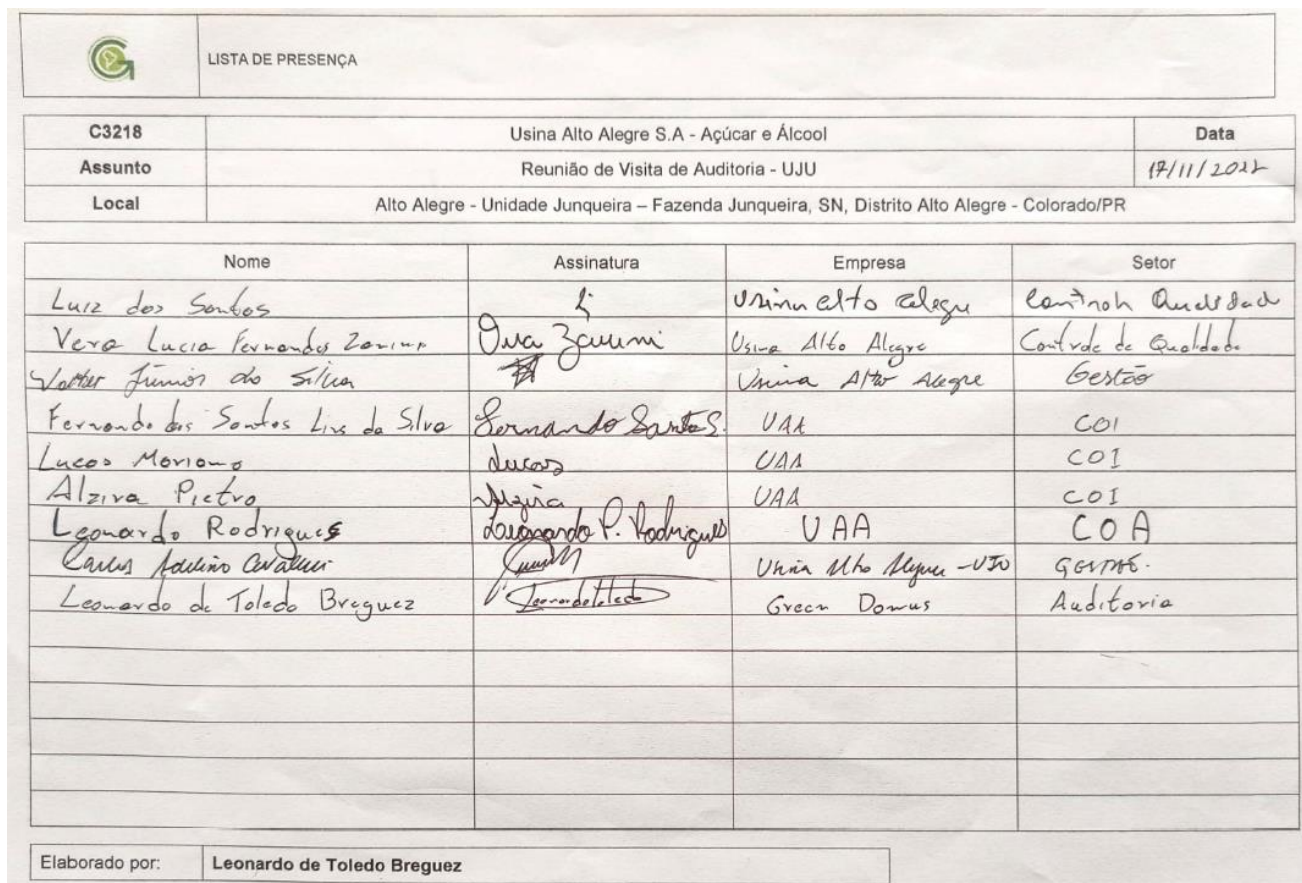 LISTA DE PRESENÇA
C3218 Usina Alto Alegre S.A - Açúcar e Álcool Data
Assunto Reunião de Visita de Auditoria - UJU 17/11/2022
Local Alto Alegre - Unidade Junqueira – Fazenda Junqueira, SN, Distrito Alto Alegre - Colorado/PR
Nome Assinatura Empresa Setor
Luiz dos Santos Usina Alto Alegre Controle Qualidade
Vera Lucia Fernandes Usina Alto Alegre Controle de Qualidade
Júnior da Silva Usina Alto Alegre Gestão
Fernando dos Santos da Silva Fernando Santos S. UAA COI
Lucas Mariano Lucas UAA COI
Alzira Pietro Alzira UAA COI
Leonardo Rodrigues Leonardo P. Rodrigues UAA COA
Carlos Usina Alto Alegre - UJU
Leonardo de Toledo Breguez Leonardo Toledo Green Domus Auditoria
Elaborado por: Leonardo de Toledo Breguez